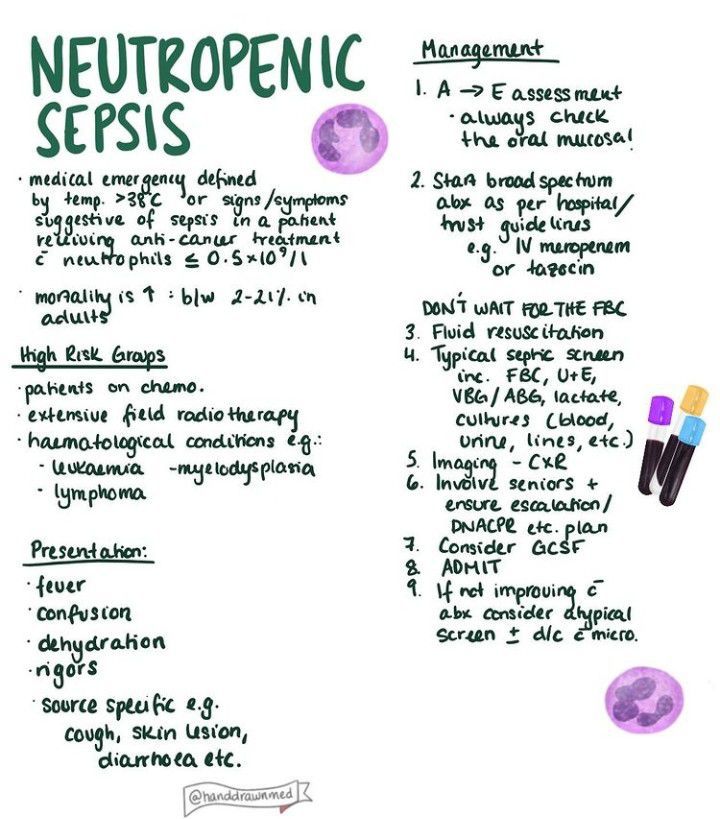 NEUTROPENIC
SEPSIS
· medical emergency defined
by temp. >38°C or signs/symptoms
suggestive of sepsis in a patient
receiving anti-cancer treatment
c̄ neutrophils ≤ 0.5×10⁹/l
· mortality is ↑ : b/w 2-21% in
adults
High Risk Groups
· patients on chemo.
· extensive field radiotherapy
· haematological conditions e.g.:
- leukaemia - myelodysplasia
- lymphoma
Presentation:
· fever
· confusion
· dehydration
· rigors
· source specific e.g.
cough, skin lesion,
diarrhoea etc.
@handdrawnmed
Management
1. A → E assessment
· always check
the oral mucosa!
2. Start broad spectrum
abx as per hospital/
trust guidelines
e.g. IV meropenem
or tazocin
DON'T WAIT FOR THE FBC
3. Fluid resuscitation
4. Typical septic screen
inc. FBC, U+E,
VBG/ABG, lactate,
cultures (blood,
urine, lines, etc.)
5. Imaging - CXR
6. Involve seniors +
ensure escalation/
DNACPR etc. plan
7. Consider GCSF
8. ADMIT
9. If not improving c̄
abx consider atypical
screen ± d/c c̄ micro.